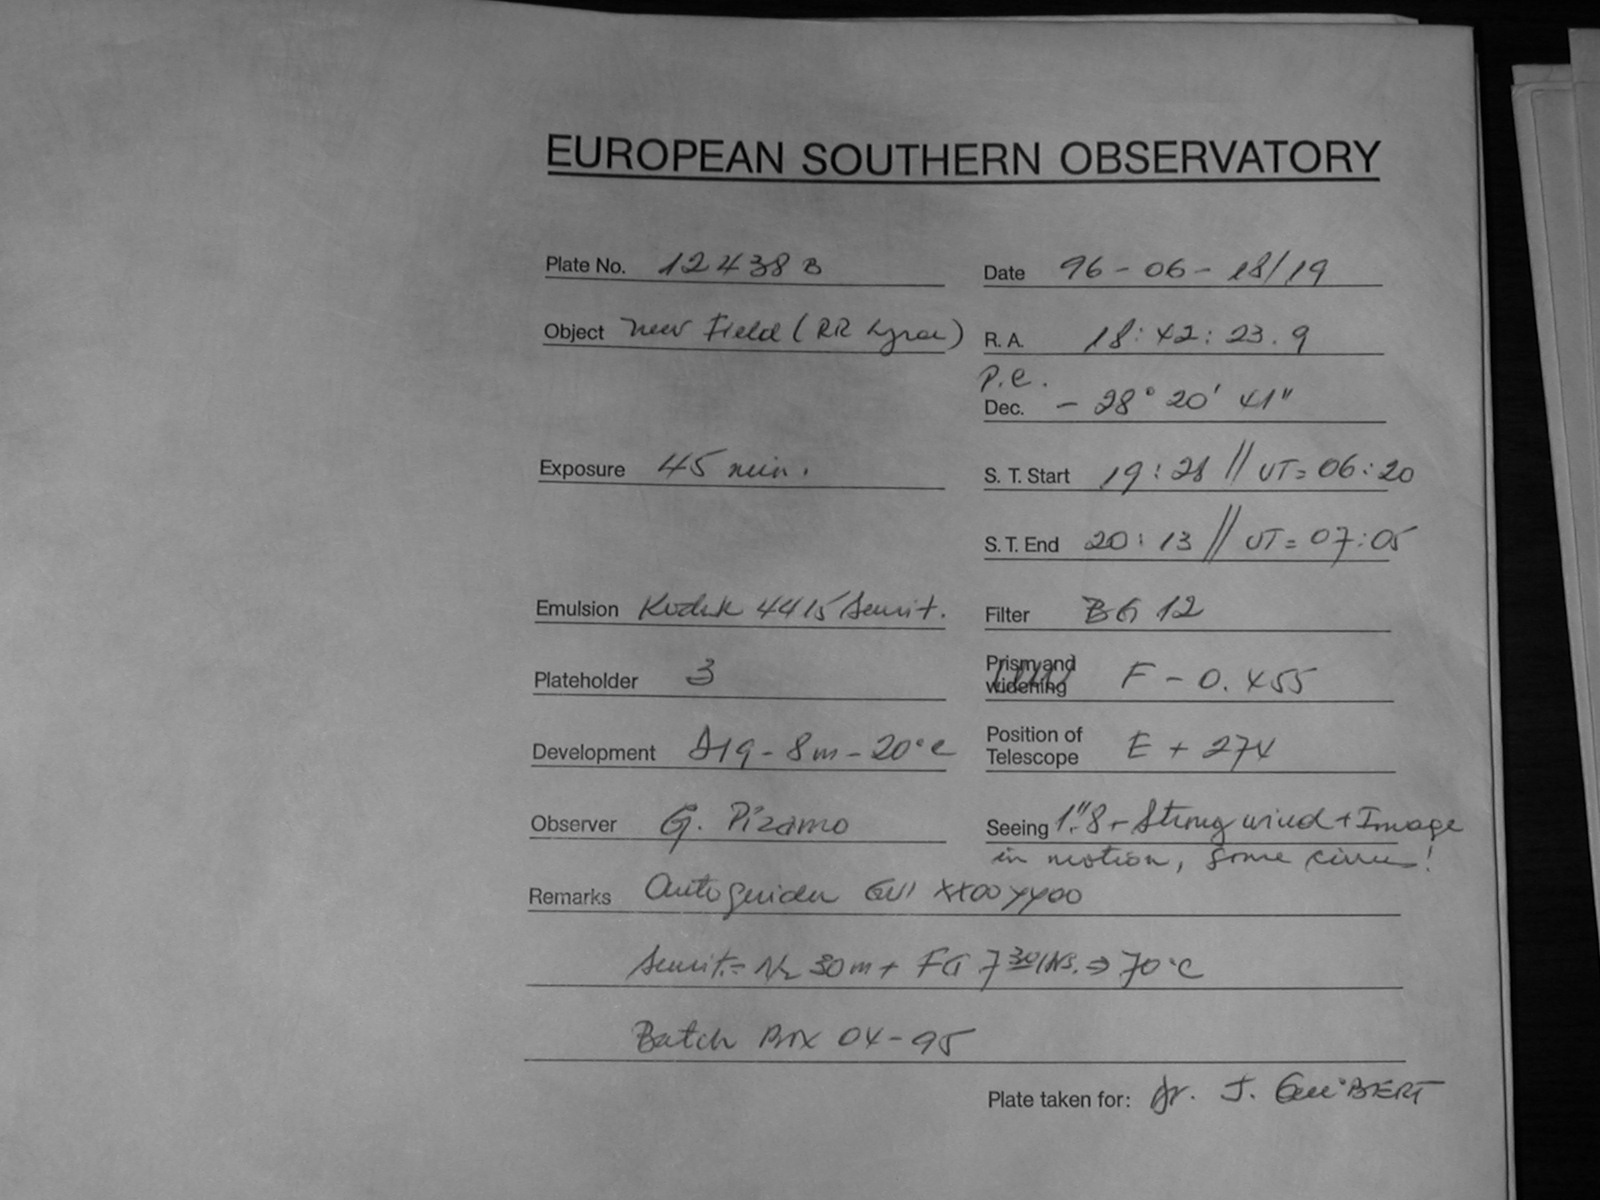 EUROPEAN SOUTHERN OBSERVATORY
Plate No. 12438 B
Date 96-06-18/19
Object New Field (RR Lyrae)
R. A. 18:42:23.9
P.e.
Dec. - 28° 20' 41"
Exposure 45 min.
S. T. Start 19:28 // UT= 06:20
S. T. End 20:13 // UT= 07:05
Emulsion Kodak 4415 Sensit.
Filter BG 12
Plateholder 3
Prism and widening F - 0.455
Development D19 - 8m - 20°C
Position of Telescope E + 274
Observer G. Pizarro
Seeing 1."8 - Strong wind + Image
in motion, some cirrus!
Remarks Autoguider XX00YY00
Sensit.= N2 30m + FG 7 30 HS. ⇒ 70°C
Batch Box 04-95
Plate taken for: Dr. J. GuiBERT